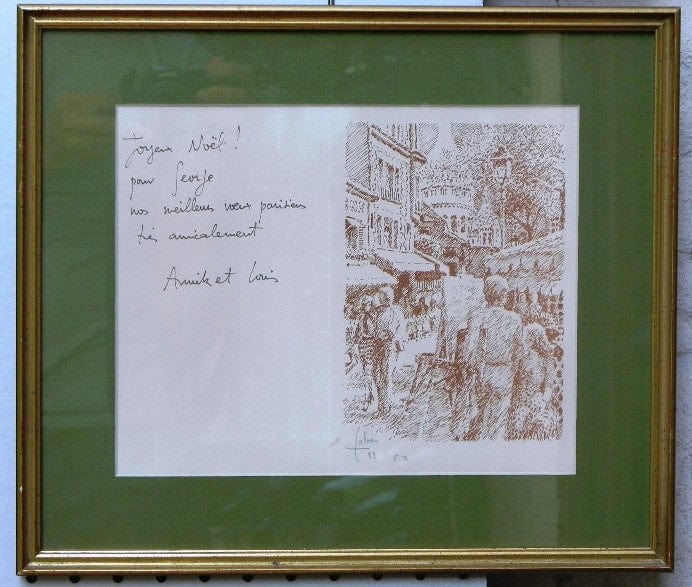 Joyeux Noël !
pour George
nos meilleurs vœux parisiens
très amicalement
Annik et Louis